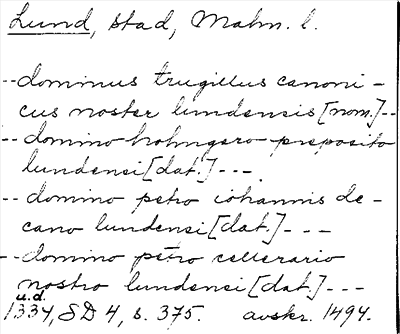 Lund, stad, Malm. l.
--dominus trugillus canoni-
cus noster lundensis [nom.]--
--domino holmgero preposito
lundensi [dat.]---
--domino petro iohannis de-
cano lundensi [dat.]---
--domino petro cellerario
nostro lundensi [dat.]---
u.d.
1334, SD 4, s. 375. avskr. 1494.